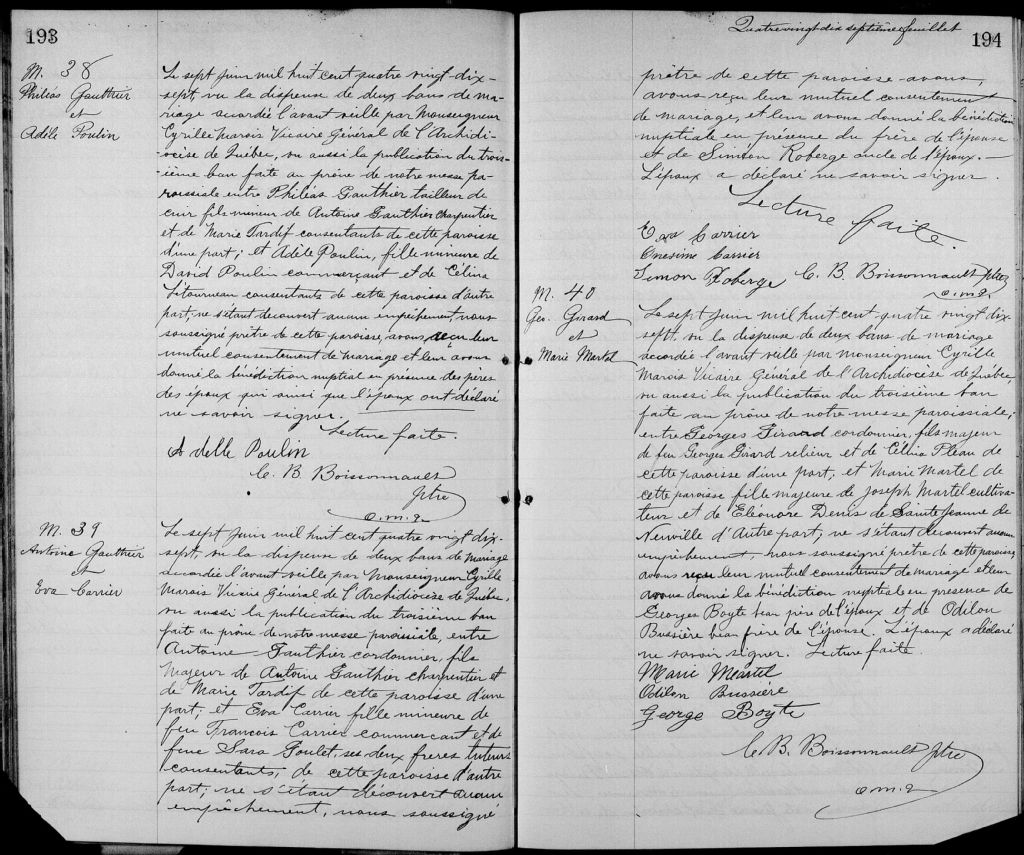 193
M. 38
Philéas Gauthier
et
Adèle Poulin
Le sept Juin mil huit cent quatre vingt dix-
-sept, vu la dispense de deux bans de ma-
-riage accordée l'avant veille par Monseigneur
Cyrille Marois Vicaire Général de l'Archidi-
-ocèse de Québec, vu aussi la publication du trois-
-ième ban faite au prône de notre messe pa-
-roissiale entre Philéas Gauthier tailleur de
cuir fils mineur de Antoine Gauthier charpentier
et de Marie Tardif consentants de cette paroisse
d'une part; et Adèle Poulin, fille mineure de
David Poulin commerçant et de Célina
Létourneau consentants de cette paroisse d'autre
part, ne s'étant decouvert aucun empêchement, nous
soussigné prêtre de cette paroisse, avons reçu leur
mutuel consentement de mariage et leur avons
donné la bénédiction nuptial en présence des pères
des époux qui ainsi que l'époux ont déclaré
ne savoir signer.
Lecture faite.
Adelle Poulin
C. B. Boissonnault
ptre
o.m.i.
M. 39
Antoine Gauthier
et
Eva Carrier
Le sept Juin mil huit cent quatre vingt dix-
sept, vu la dispense de deux bans de mariage
accordée l'avant veille par Monseigneur Cyrille
Marois Vicaire Général de l'Archidiocèse de Québec,
vu aussi la publication du troisième ban
faite au prône de notre messe paroissiale, entre
Antoine Gauthier cordonnier, fils
majeur de Antoine Gauthier charpentier et
de Marie Tardif de cette paroisse d'une
part; et Eva Carrier fille mineure de
feu François Carrier commerçant et de
feue Sara Goulet, ses deux freres tuteurs
consentants, de cette paroisse d'autre
part; ne s'étant découvert aucun
empêchement, nous soussigné
Quatrevingt dix septième feuillet
194
prêtre de cette paroisse avons,
avons reçu leur mutuel consentement
de mariage, et leur avons donné la bénédiction
nuptiale en présence du frère de l'épouse
et de Siméon Roberge oncle de l'époux.—
L'époux a déclaré ne savoir signer.
Lecture faite.
Eva Carrier
Onesime Carrier
Simon Roberge C. B. Boissonnault ptre
o.m.i.
M. 40
Geo. Girard
et
Marie Martel
Le sept Juin mil huit cent quatre vingt dix-
sept, vu la dispense de deux bans de mariage
accordée l'avant veille par monseigneur Cyrille
Marois Vicaire Général de l'Archidiocèse de Québec,
vu aussi la publication du troisième ban
faite au prône de notre messe paroissiale,
entre Georges Girard cordonnier, fils majeur
de feu Georges Girard relieur et de Célina Pleau de
cette paroisse d'une part, et Marie Martel de
cette paroisse fille majeure de Joseph Martel cultiva-
teur et de Eléonore Denis de Sainte Jeanne de
Neuville d'Autre part; ne s'étant découvert aucun
empêchement, nous soussigné prêtre de cette paroisse,
avons reçu leur mutuel consentement de mariage et leur
avons donné la bénédiction nuptial en presence de
Georges Boyte beau père de l'époux et de Odilon
Bussière beau frère de l'épouse. L'époux a déclaré
ne savoir signer. Lecture faite.
Marie Martel
Odilon Bussière
George Boyte
C. B. Boissonnault ptre
o.m.i.